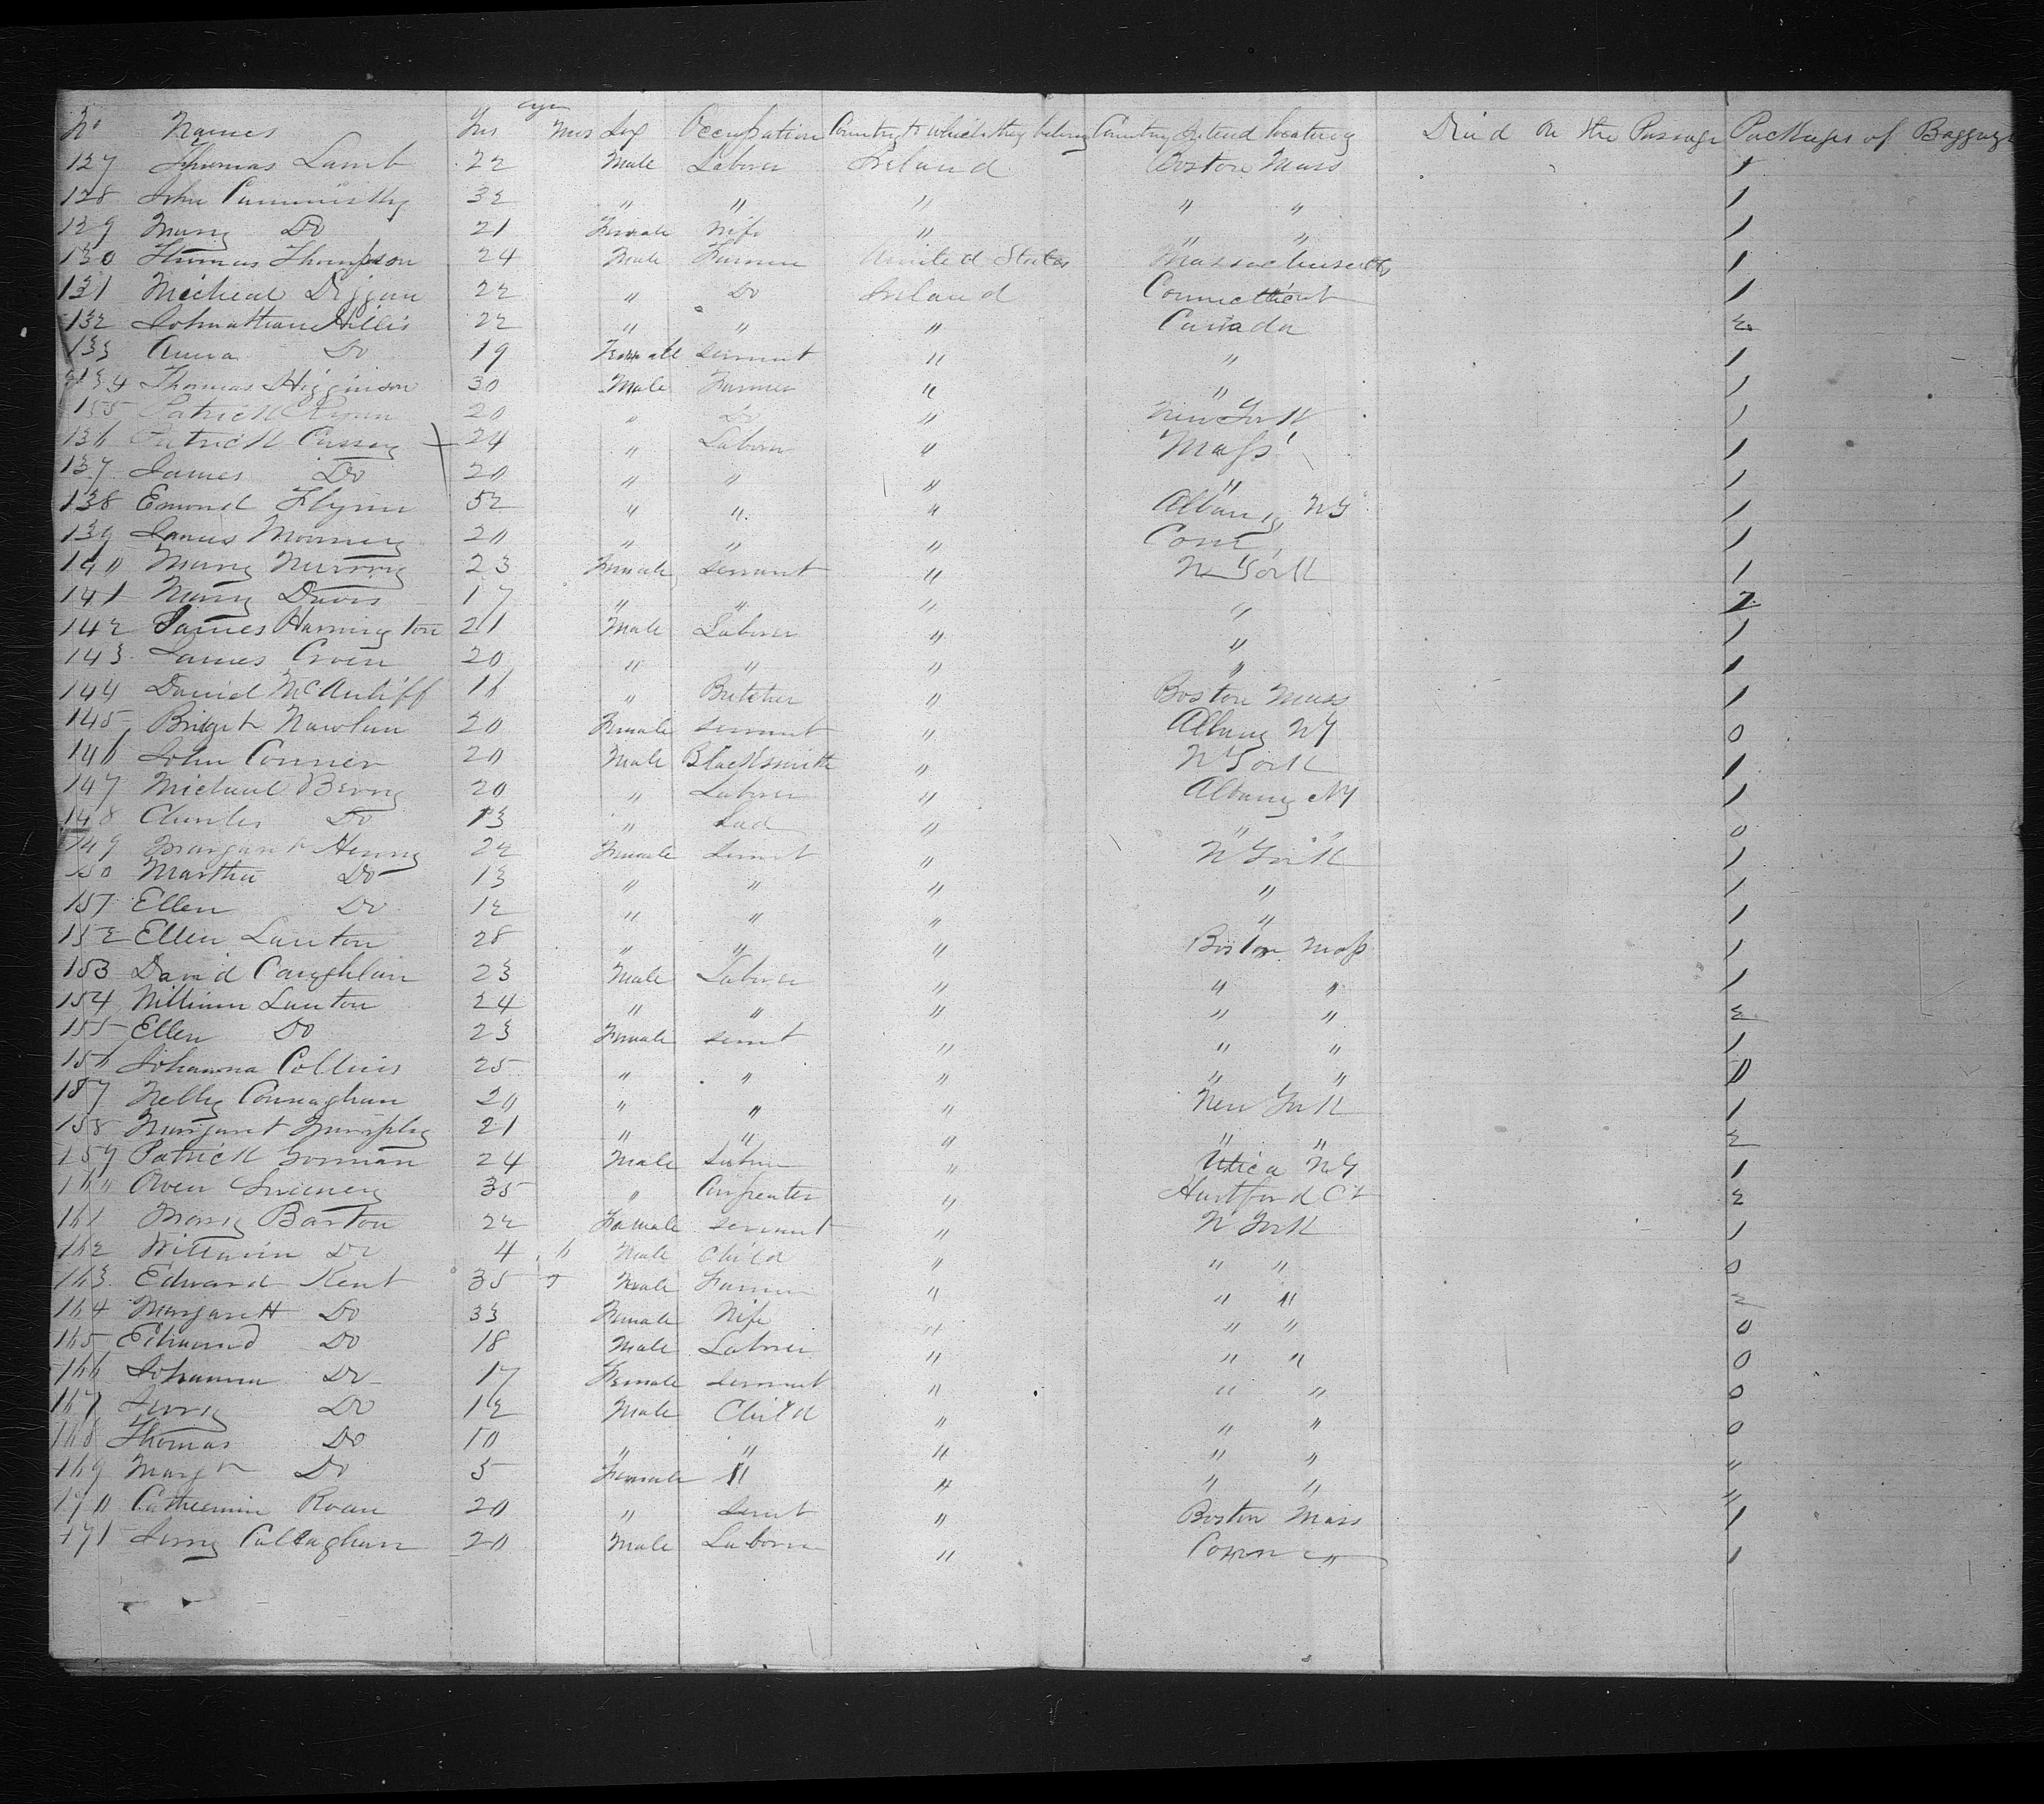 age
No Names Yrs Mos Sex Occupation Country to which they belong Country Intend locating Died on the Passage Packages of Baggage
127 Thomas Lamb 22 Male Laborer Ireland Boston Mass 1
128 John 32 " " " " " 1
129 Mary Do 21 Female Wife " " " 1
130 Thomas Thompson 24 Male Farmer United States Massachusetts 1
131 Micheal Diggan 22 " Do Ireland Connecticut 1
132 Johnathan Hillis 22 " " " Canada 2
133 Anna Do 19 Female servant " " 1
134 Thomas Higginson 30 Male Farmer " " 1
135 Patrick Ryan 20 " Do " New York 1
136 Patrick Cussey 24 " Laborer " Mass 1
137 James Do 20 " " " " 1
138 Emond Flynn 52 " " " Albany NY 1
139 James Mooney 20 " " " Conn 1
140 Mary Murray 23 Female servant " N York 1
141 Mary Davis 17 " " " " 2
142 James Harrington 21 Male Laborer " " 1
143 James Croen 20 " " " " 1
144 David McAuliff 16 " Butcher " Boston Mass 1
145 Briget Nawlan 20 Female servant " Albany NY 0
146 John Conner 20 Male Blacksmith " N York 1
147 Michael Berry 20 " Laborer " Albany NY 1
148 Charles Do 13 " Lad " " " 0
149 Margaret Henry 22 Female Servnt " N York 1
150 Martha Do 13 " " " " 1
151 Ellen Do 12 " " " " 1
152 Ellen Lawton 28 " " " Boston Mass 1
153 David Caughlin 23 Male Laborer " " " 1
154 William Lawton 24 " " " " " 2
155 Ellen Do 23 Female servnt " " " 1
156 Johanna Collins 25 " " " " " 0
157 Nelly Connaghan 20 " " " New York 1
158 Margaret Murphy 21 " " " " " 2
159 Patrick Gorman 24 Male Labrer " Utica NY 1
160 Owen Sweeney 35 " Carpenter " Hartford Ct 2
161 Mary Barton 22 Female servant " N York 1
162 William Do 4 6 Male Child " " " 0
163 Edward Kent 35 Male Farmer " " " 2
164 Margarett Do 33 Female Wife " " " 0
165 Edmund Do 18 Male Laborer " " " 0
166 Johanna Do 17 Female servant " " " 0
167 Jerry Do 12 Male Child " " " 0
168 Thomas Do 10 " " " " " "
169 Margt Do 5 Female " " " " "
170 Catherine Roan 20 " Servnt " Boston Mass 1
171 Jerry Callaghan 20 Male Laborer " Conn " 1